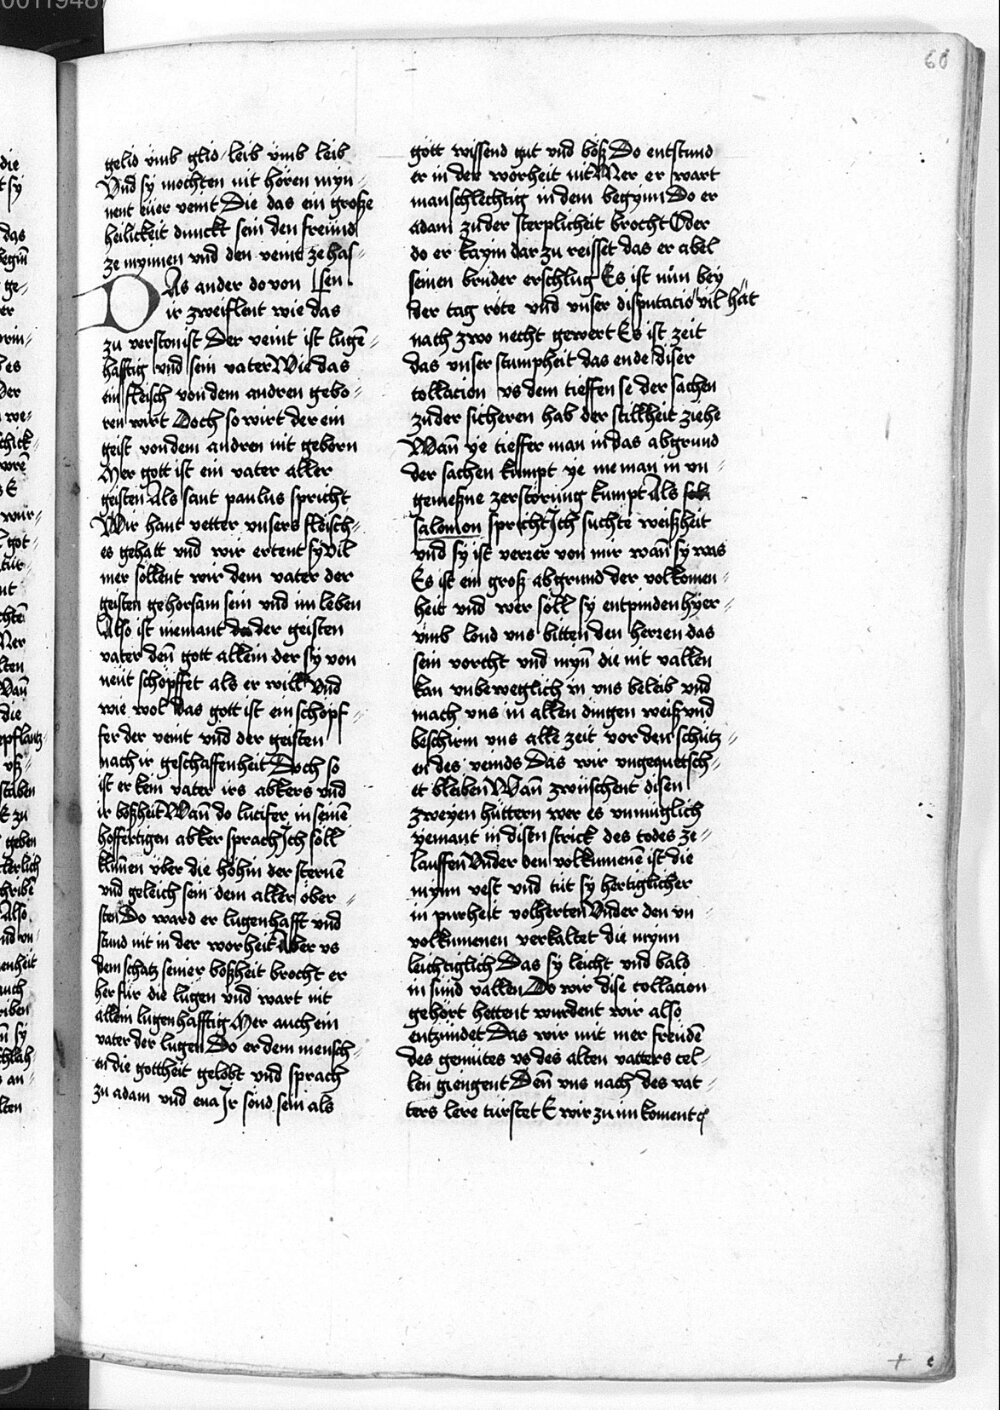 60
gelid vmb glid leib vmb leib
Vnd sy mochten nit hören myn=
nent eüer veint Die das ein große
heilickeit dunckt sein den freünd
ze mynnen vnd den veint ze has=
DAs ander do von sen
ir zweiflent wie das
zu verston ist Der veint ist lugē=
hafftig vnd sein vater Wie das
ein fleisch von dem andren gebo=
ren wirt Doch so wirt der ein
geist von dem andren nit geborn
Mer gott ist ein vater aller
geisten Als sant paulus spricht
Wir hant vetter vnsers fleisch=
es gehatt vnd wir ertent sy Vil
mer sollent wir dem vater der
geisten gehorsam sein vnd im leben
Also ist niemant der geisten
vater deñ gott allein der sy von
neüt schöpffet als er will Vnd
wie wol das gott ist ein schöpf=
fer der veint vnd der geisten
nach ir geschaffenheit Doch so
ist er kein vater irs abkers vnd
ir boßheit Wañ do lucifer in seinē
hoffertigen abker sprach Ich soll
klim̄en über die höhin der sternē
vnd geleich sein dem aller ober=
sten Do ward er lugenhafft vnd
stund nit in der worheit Aber vs
dem schatz seiner boßheit brocht er
her für die lugen vnd wart nit
allein lugenhafftig Mer auch ein
vater der lugen Do er dem mensch=
en die gottheit gelobt vnd sprach
zu adam vnd eua Ir sönd sein als
gött wissend gut vnd böß Do entstund
er in der worheit nit Mer er wart
manschlechtig in dem begynn Do er
adam zu der sterplicheit brocht Oder
do er kayin dar zu reisset das er abel
seinen brüder erschlug Es ist nün bey
der tag röte vnd vnser disputacio vil hät
nach zwo necht gewert Es ist zeit
das vnser stumpheit das ende diser
collacion vs dem tieffen se der sachen
zu der sicheren hab der stillheit ziehe
Wañ ye tieffer man in das abgrund
der sachen kumpt ye me man in vn=
gemeßne zerstörung kumpt Als
salomon spricht Ich suchte weißheit
vnd sy ist verrer von mir wañ sy was
Es ist ein groß abgrund der volkomen=
heit vnd wer soll sy entpinden Hyer=
vmb lond vns bitten den herren das
sein vorcht vnd mynn die nit vallen
kan vnbeweglich in vns beleib vnd
mach vns in allen dingen weiß vnd
beschirm vns alle zeit vor den schütz=
en des veinds Das wir vngequetsch=
et bleiben Wañ zwüschent disen
zweyen hüttern wer es vnmüglich
yemant in disen strick des todes ze=
lauffen Vnder den volkumenē ist die
mynn vest vnd tüt sy hertiglicher
in purheit volherten Vnder den vn=
volkumenen verkaltet die mynn
leichtiglich Das sy leicht vnd bald
in sünd vallen Do wir dise collacion
gehört hettent wurdent wir also
entzündet Das wir mit mer freüdē
des gemütes vs des alten vatters cel=
len giengent Deñ vns nach des vat=
ters lere türstet E wir zu im koment